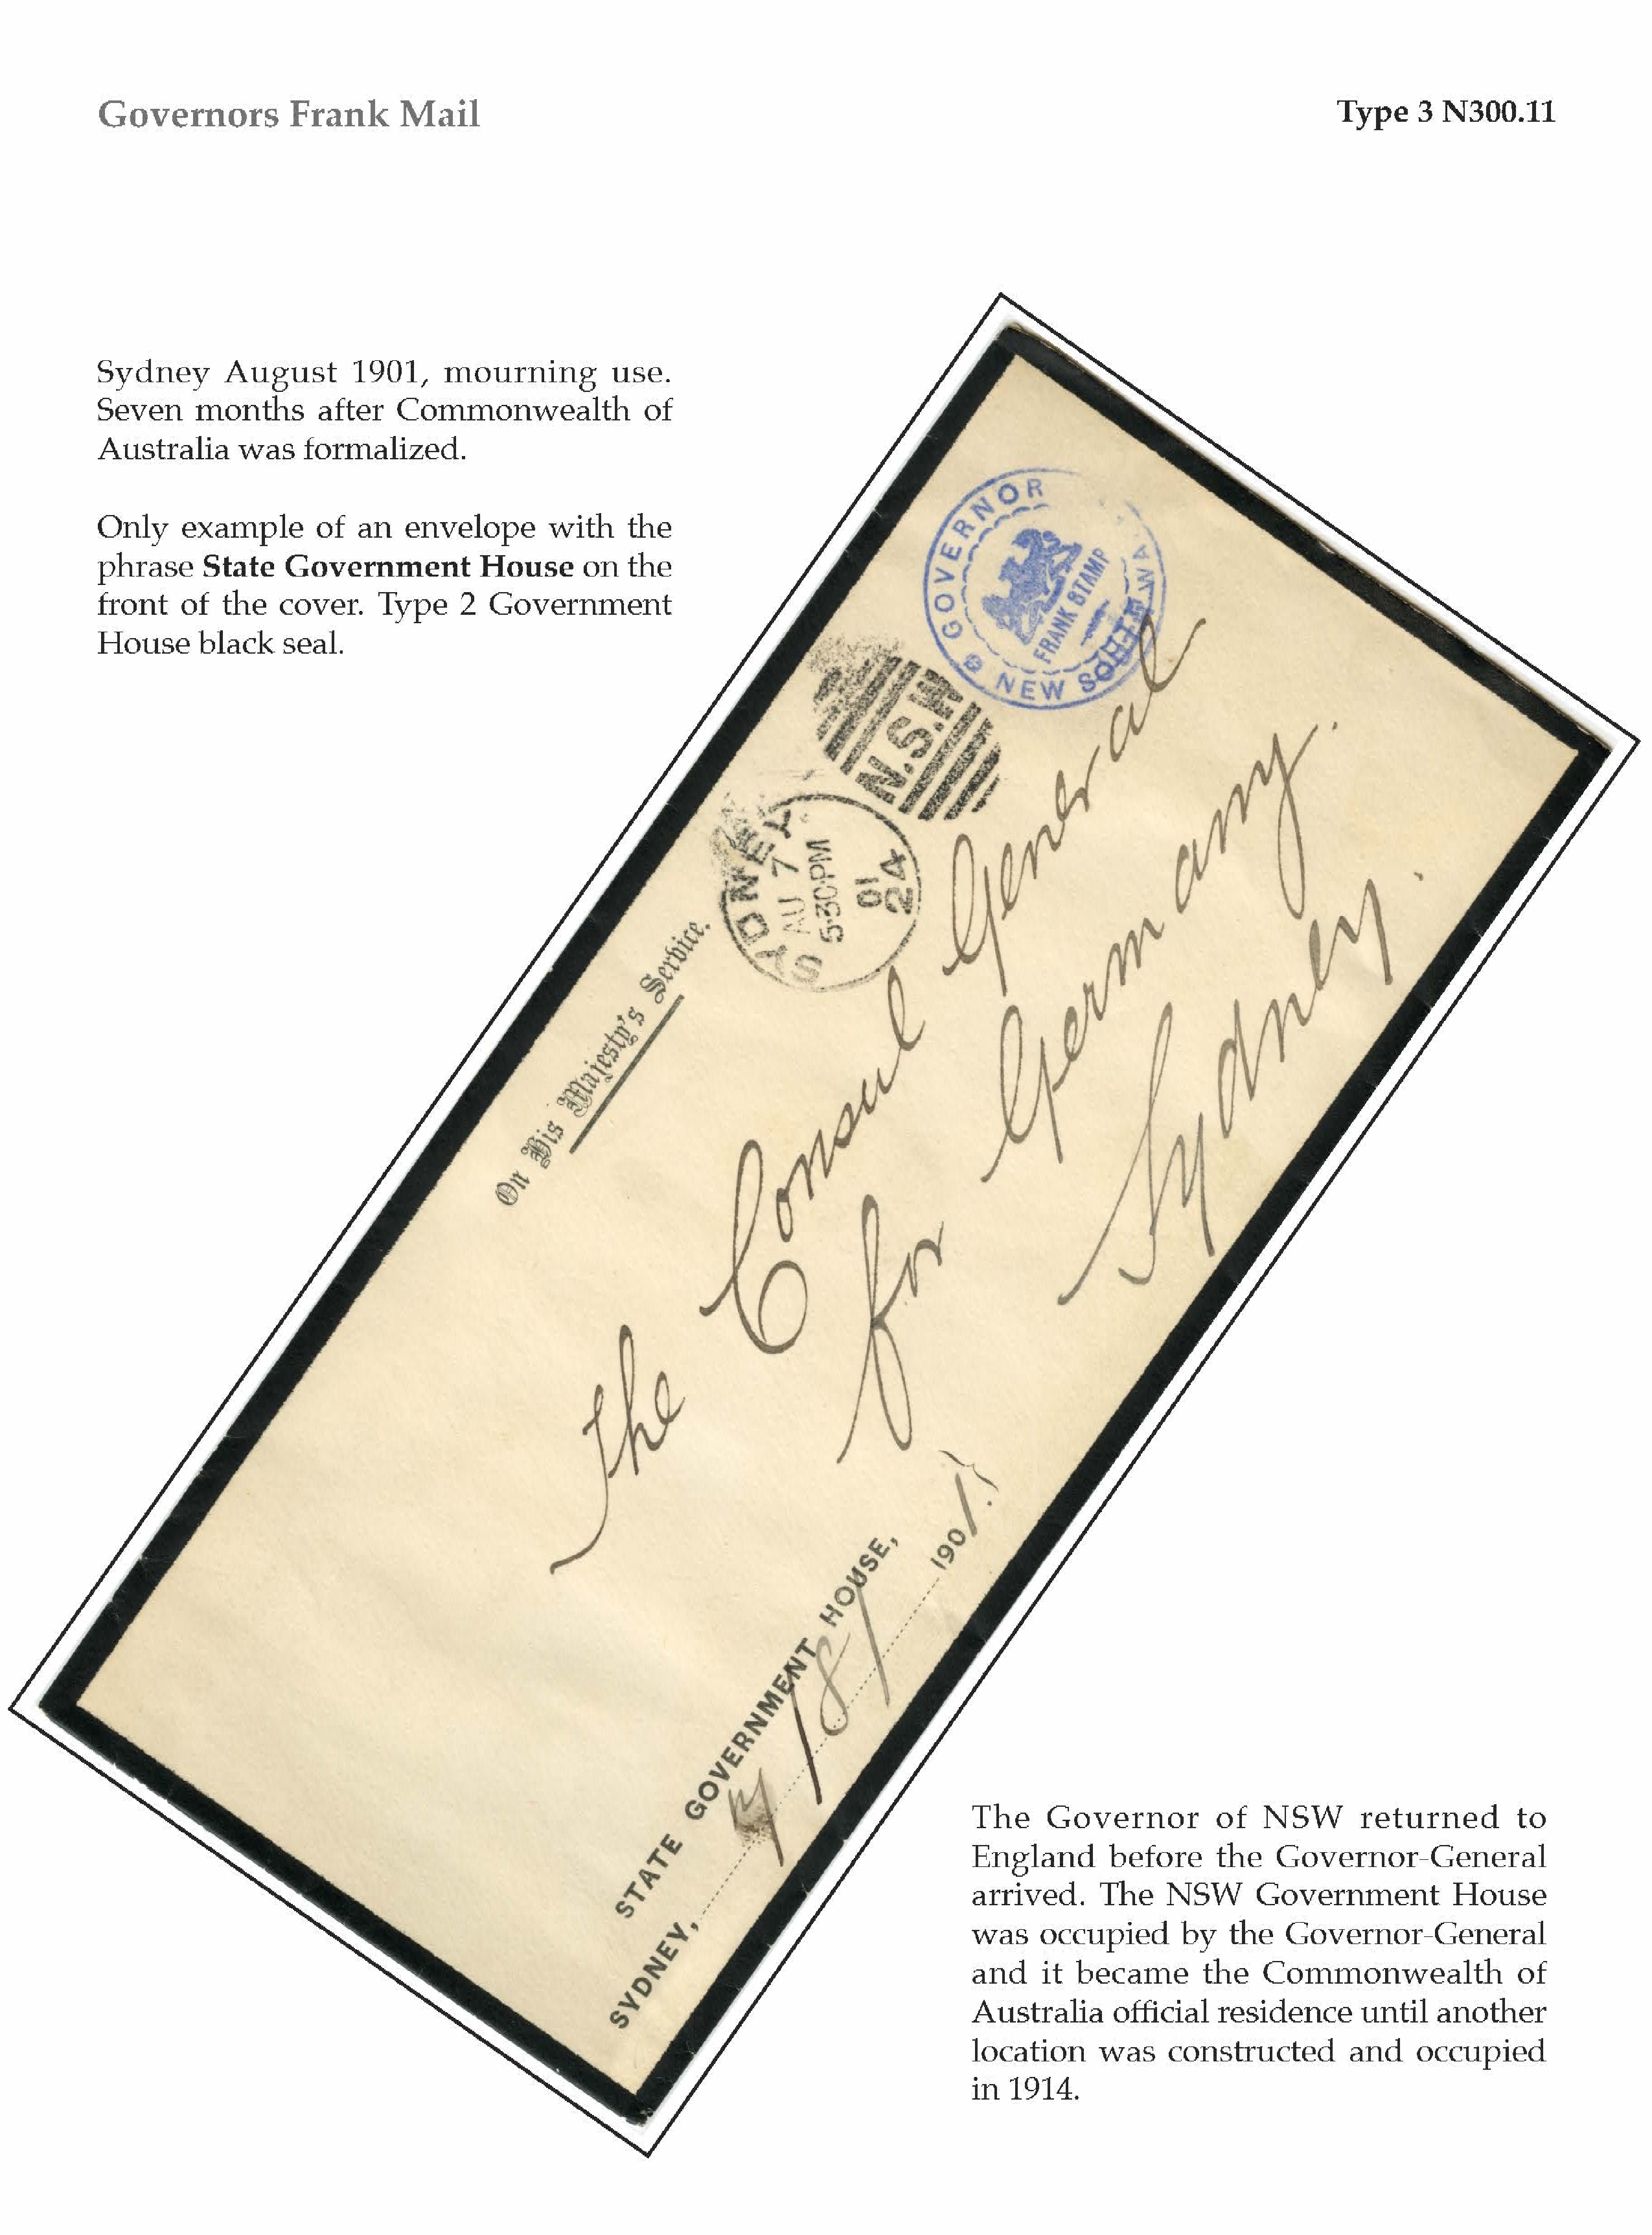 Governors Frank Mail
Type 3 N300.11
Sydney August 1901, mourning use.
Seven months after Commonwealth of
Australia was formalized.
Only example of an envelope with the
phrase State Government House on the
front of the cover. Type 2 Government
House black seal.
GOVERNOR
FRANK STAMP
NEW SOUTH WA
N.S.W
SYDNEY.
AU 7
5·30PM
01
24
On His Majesty's Service.
The Consul General
for Germany.
Sydney.
STATE GOVERNMENT HOUSE,
SYDNEY, 7/8/1901.
The Governor of NSW returned to
England before the Governor-General
arrived. The NSW Government House
was occupied by the Governor-General
and it became the Commonwealth of
Australia official residence until another
location was constructed and occupied
in 1914.